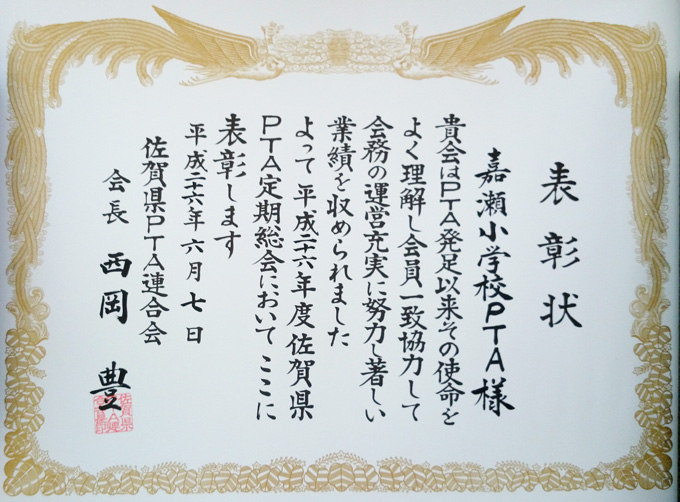 表彰状
嘉瀬小学校PTA様
貴会はPTA発足以来その使命を
よく理解し会員一致協力して
会務の運営充実に努力し著しい
業績を収められました
よって平成二十六年度佐賀県
PTA定期総会においてここに
表彰します
平成二十六年六月七日
佐賀県PTA連合会
会長 西岡 豊